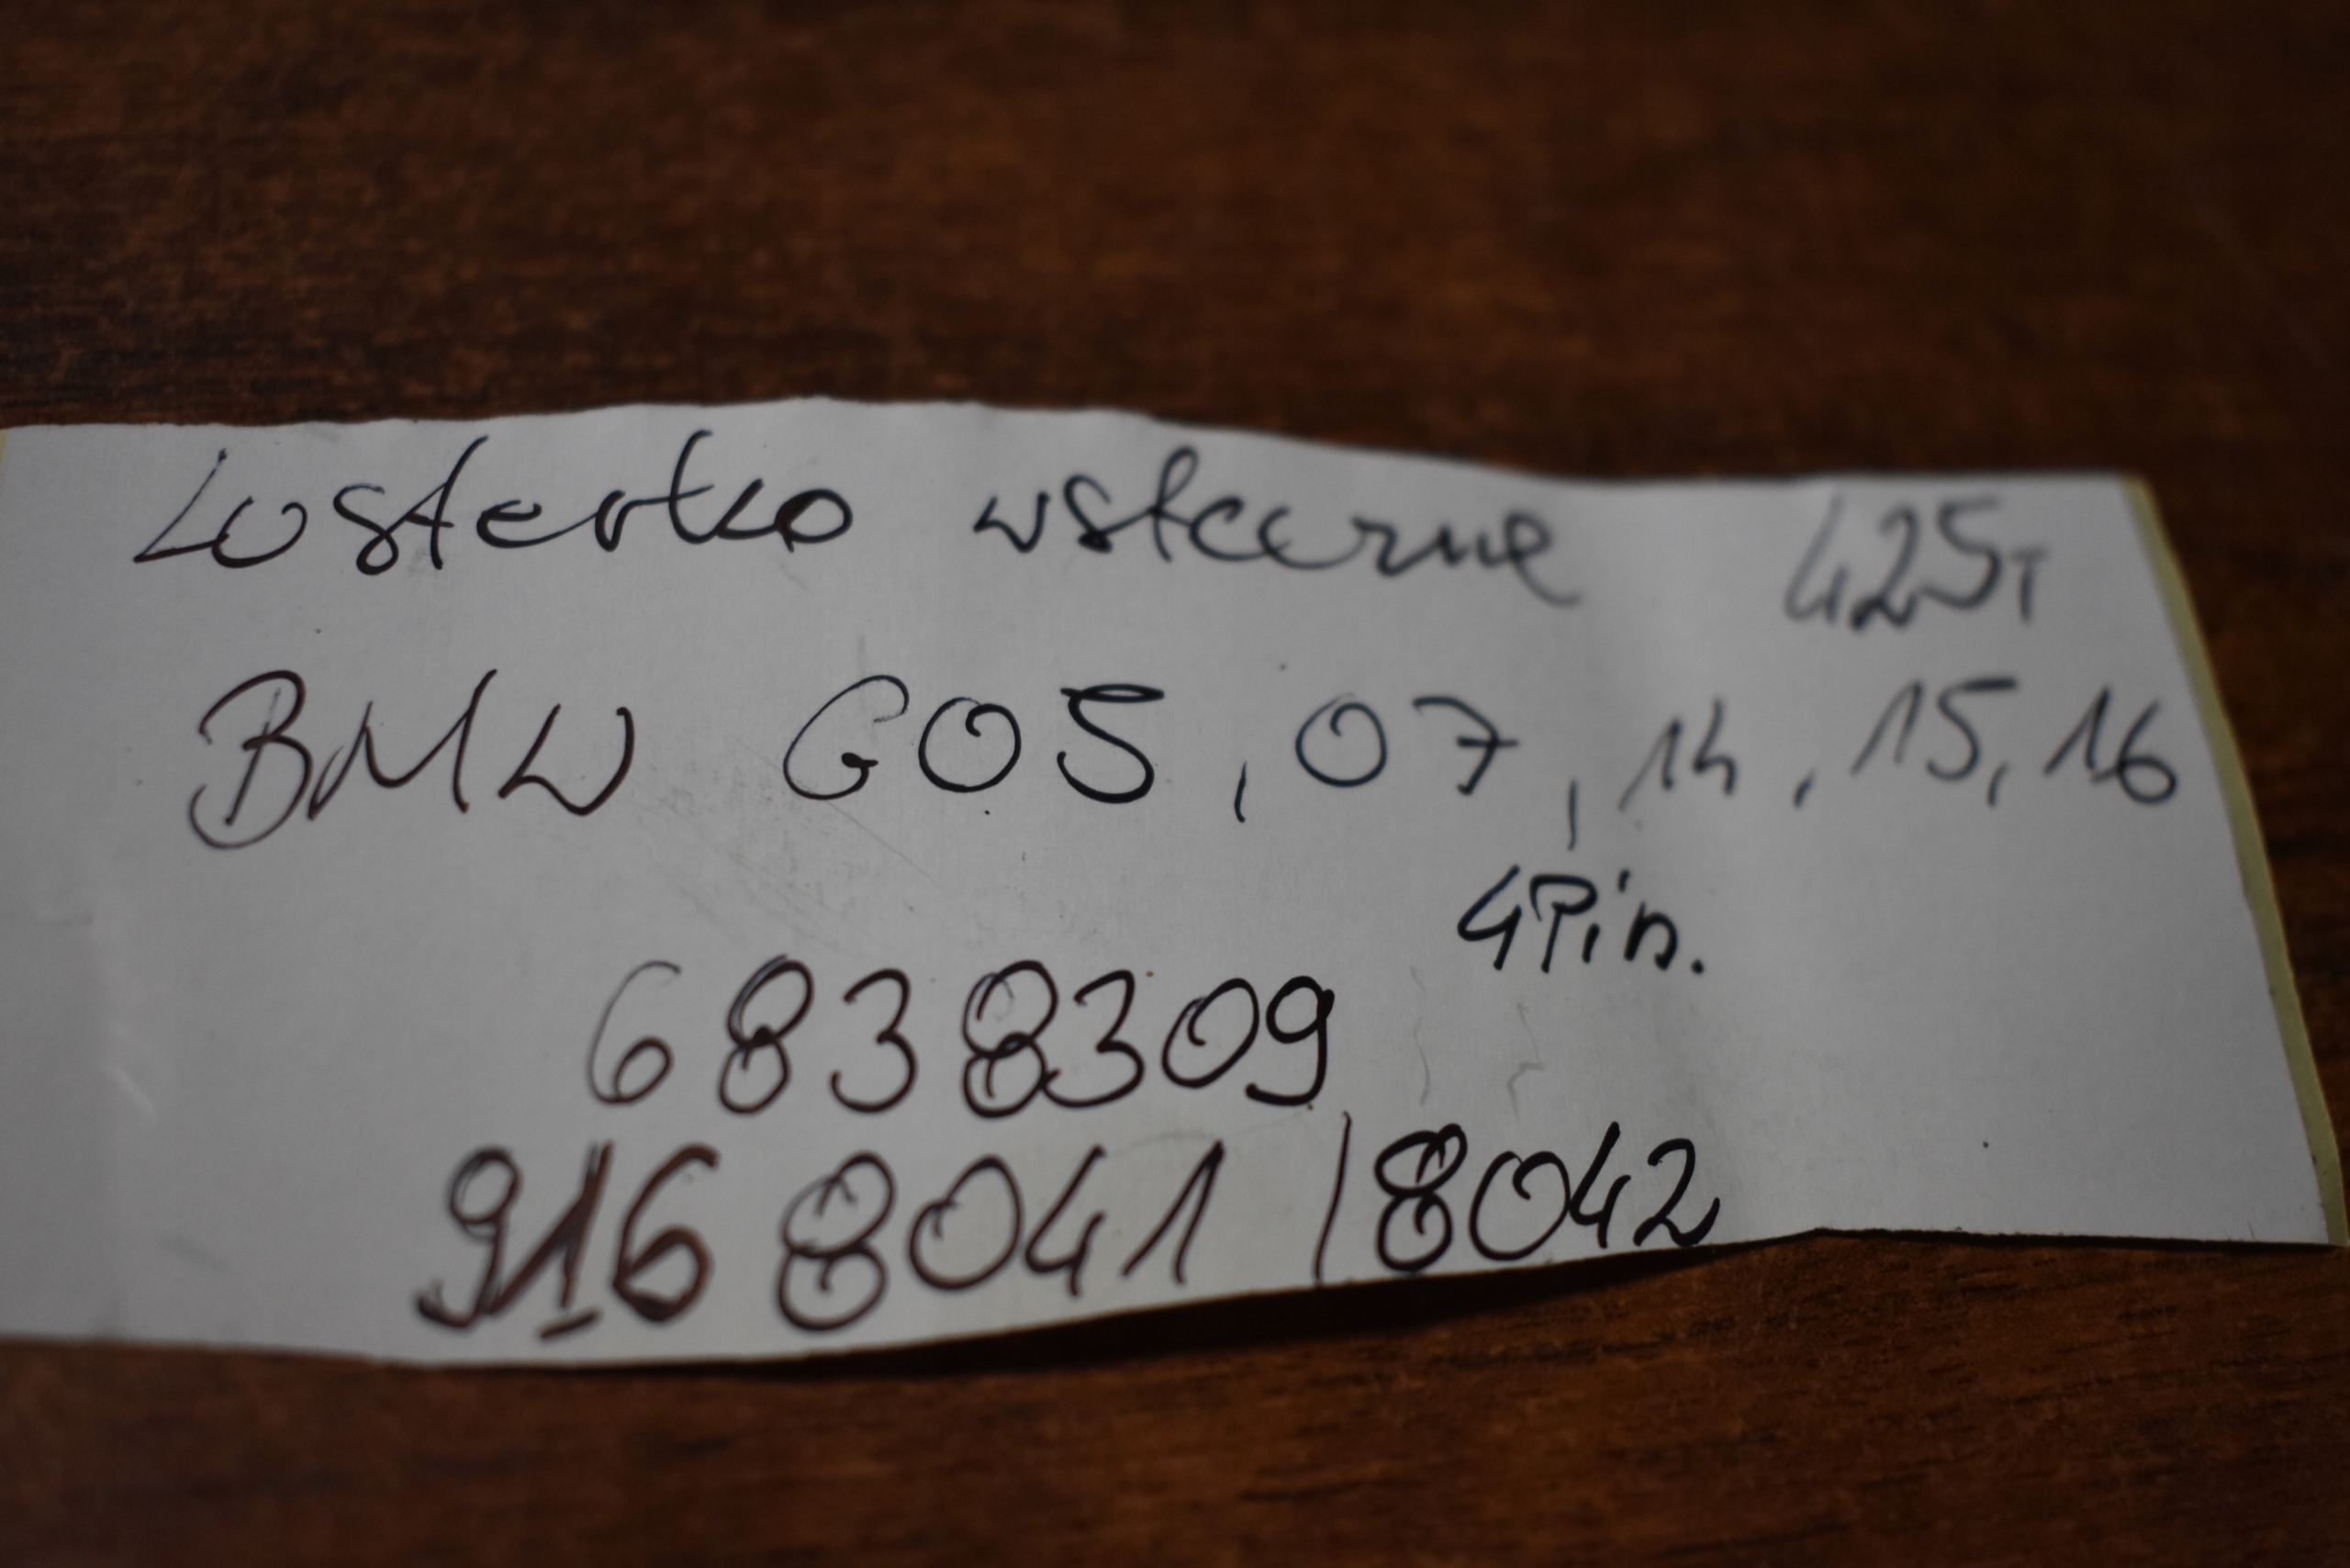 Lusterko wsteczne 425T
BMW G05, 07, 14, 15, 16
4Pin.
6838309
9168041 / 8042